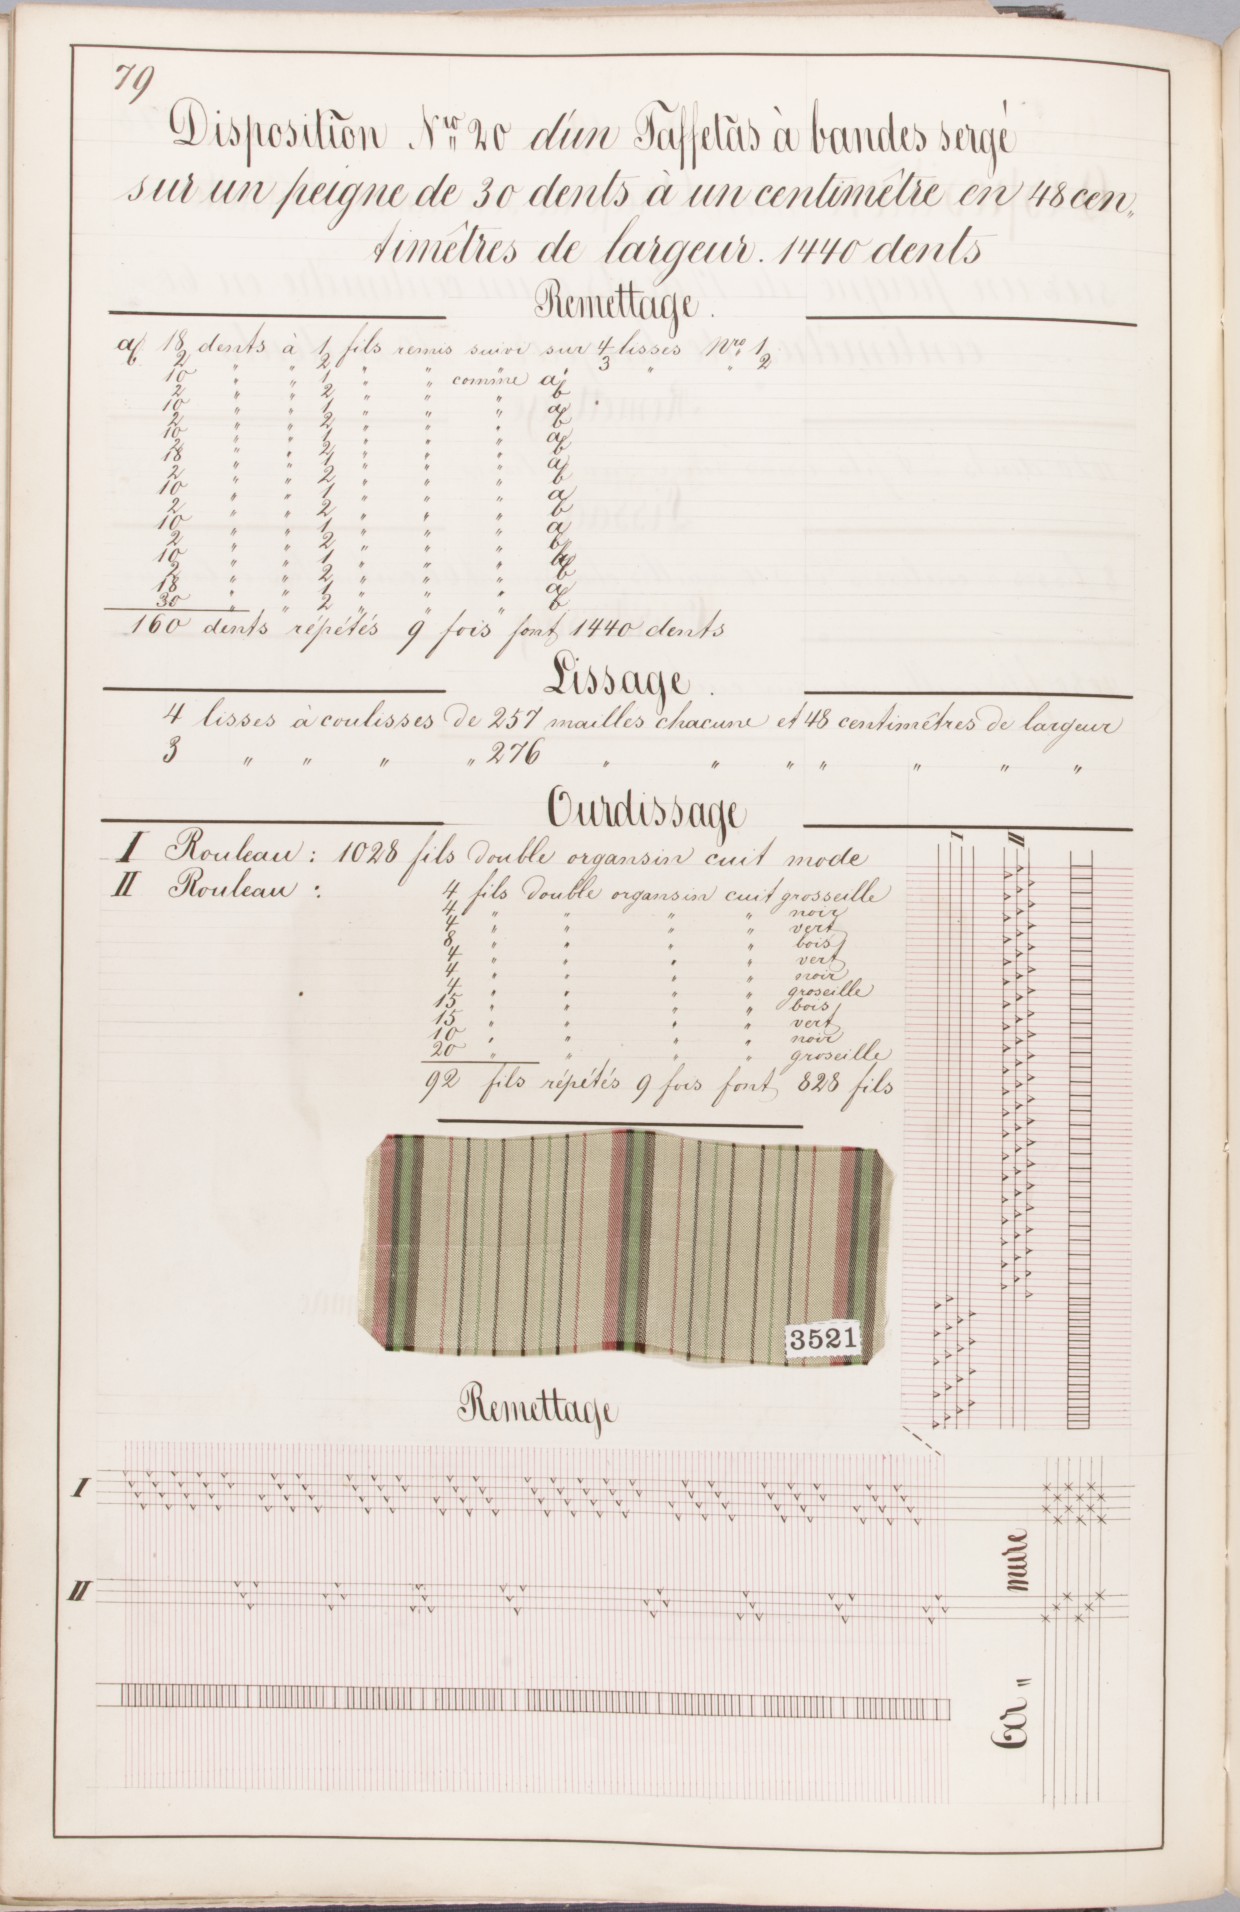 79
Disposition Nro 20 d'un Taffetas à bandes sergé
sur un peigne de 30 dents à un centimêtre en 48 cen„
timêtres de largeur. 1440 dents
Remettage.
a 18 dents à 1 fils remis suivi sur 4 lisses Nro 1
b 2 " " 2 " " " 3 " " 2
10 " " 1 " " comme a
2 " " 2 " " " b
10 " " 1 " " " a
2 " " 2 " " " b
10 " " 1 " " " a
2 " " 2 " " " b
18 " " 1 " " " a
2 " " 2 " " " b
10 " " 1 " " " a
2 " " 2 " " " b
10 " " 1 " " " a
2 " " 2 " " " b
10 " " 1 " " " a
2 " " 2 " " " b
18 " " 1 " " " a
30 " " 2 " " " b
160 dents répétés 9 fois font 1440 dents
Lissage.
4 lisses à coulisses de 257 mailles chacune et 48 centimêtres de largeur
3 " " " " 276 " " " " " " "
Ourdissage
I Rouleau: 1028 fils double organsin cuit mode
II Rouleau: 4 fils double organsin cuit grosseille
4 " " " " noir
4 " " " " vert
8 " " " " bois
4 " " " " vert
4 " " " " noir
4 " " " " groseille
15 " " " " bois
15 " " " " vert
10 " " " " noir
20 " " " " groseille
92 fils répétés 9 fois font 828 fils
I II
3521
Remettage
I
II
Ar„mure